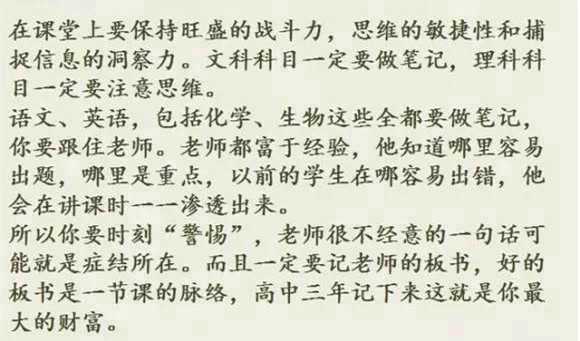 在课堂上要保持旺盛的战斗力，思维的敏捷性和捕
捉信息的洞察力。文科科目一定要做笔记，理科科
目一定要注意思维。
语文、英语，包括化学、生物这些全都要做笔记，
你要跟住老师。老师都富于经验，他知道哪里容易
出题，哪里是重点，以前的学生在哪容易出错，他
会在讲课时一一渗透出来。
所以你要时刻“警惕”，老师很不经意的一句话可
能就是症结所在。而且一定要记老师的板书，好的
板书是一节课的脉络，高中三年记下来这就是你最
大的财富。